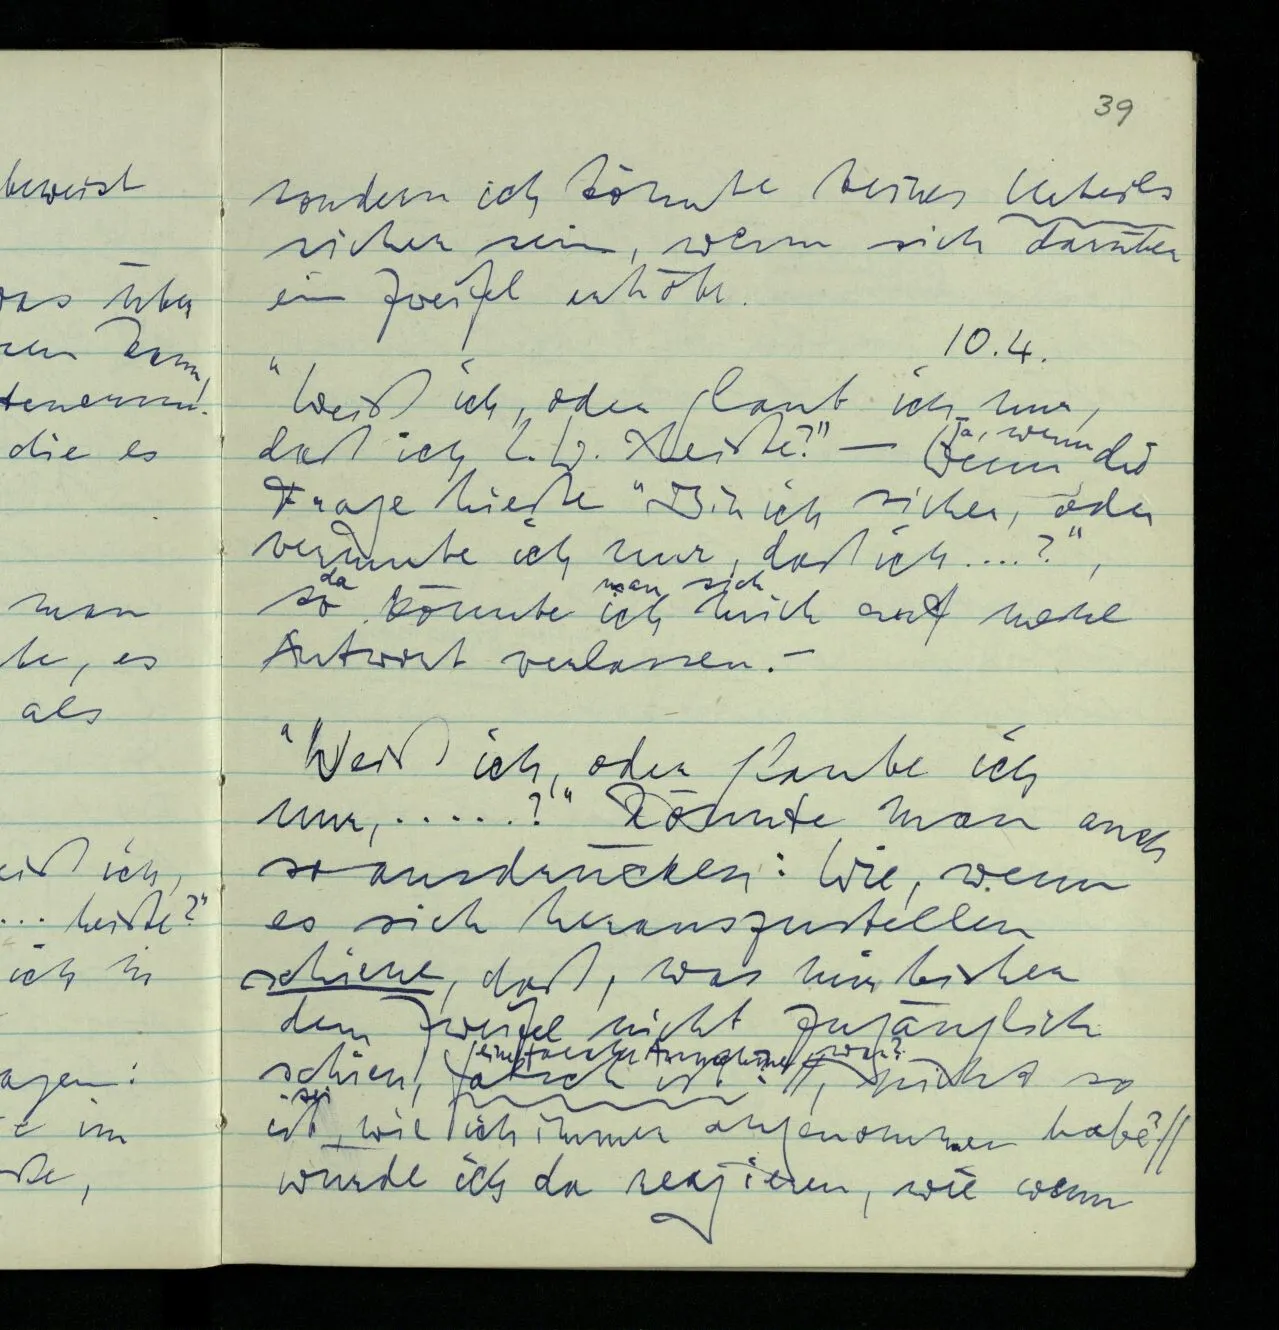 39
beweist
was über
die es
man
te, es
als
eiß ich,
... heiße?"
ich in
agen:
im
sondern ich könnte keines Urteils
sicher sein, wenn sich darüber
ein Zweifel erhöbe.
10.4.
"Weiß ich, oder glaub ich nur,
daß ich L.W. heiße?" — Ja, wenn Wenn die
Frage hieße "Bin ich sicher, oder
vermute ich nur, daß ich ....?",
so da könnte ich man mich sich auf meine
Antwort verlassen. –
"Weiß ich, oder glaube ich
nur, .....?" könnte man auch
so ausdrücken: Wie, wenn
es sich herauszustellen
schiene, daß, was mir bisher
dem Zweifel nicht zugänglich
eine falsche Annahme war?
schien, falsch ist?//, nicht so
ist sei, wie ich immer angenommen habe?//
würde ich da reagieren, wie wenn